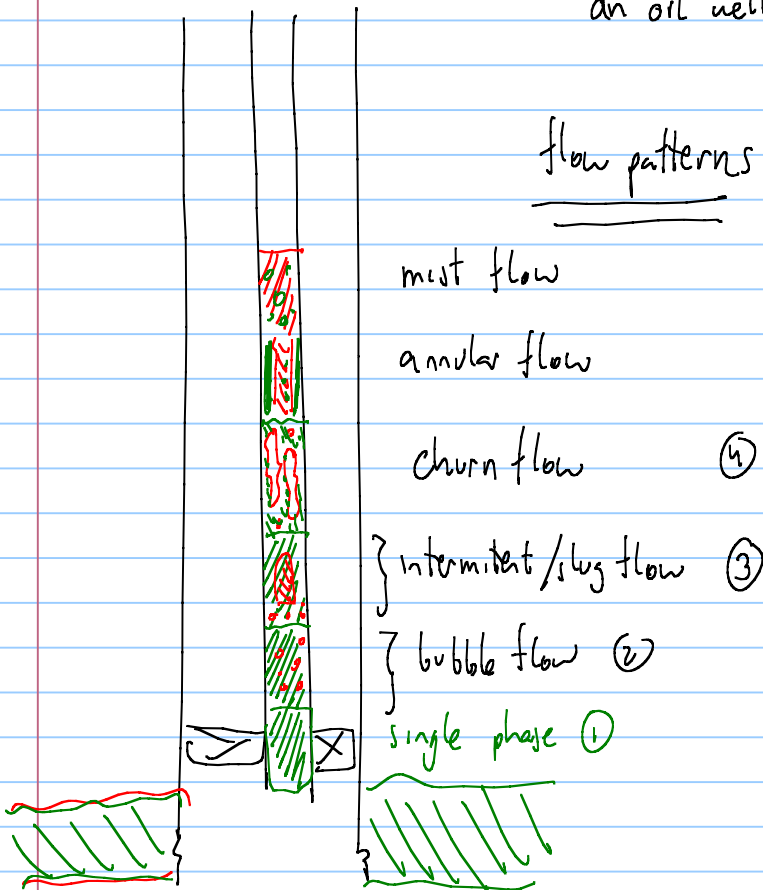 an oil well
flow patterns
mist flow
annular flow
churn flow ④
intermitent/slug flow ③
bubble flow ②
single phase ①